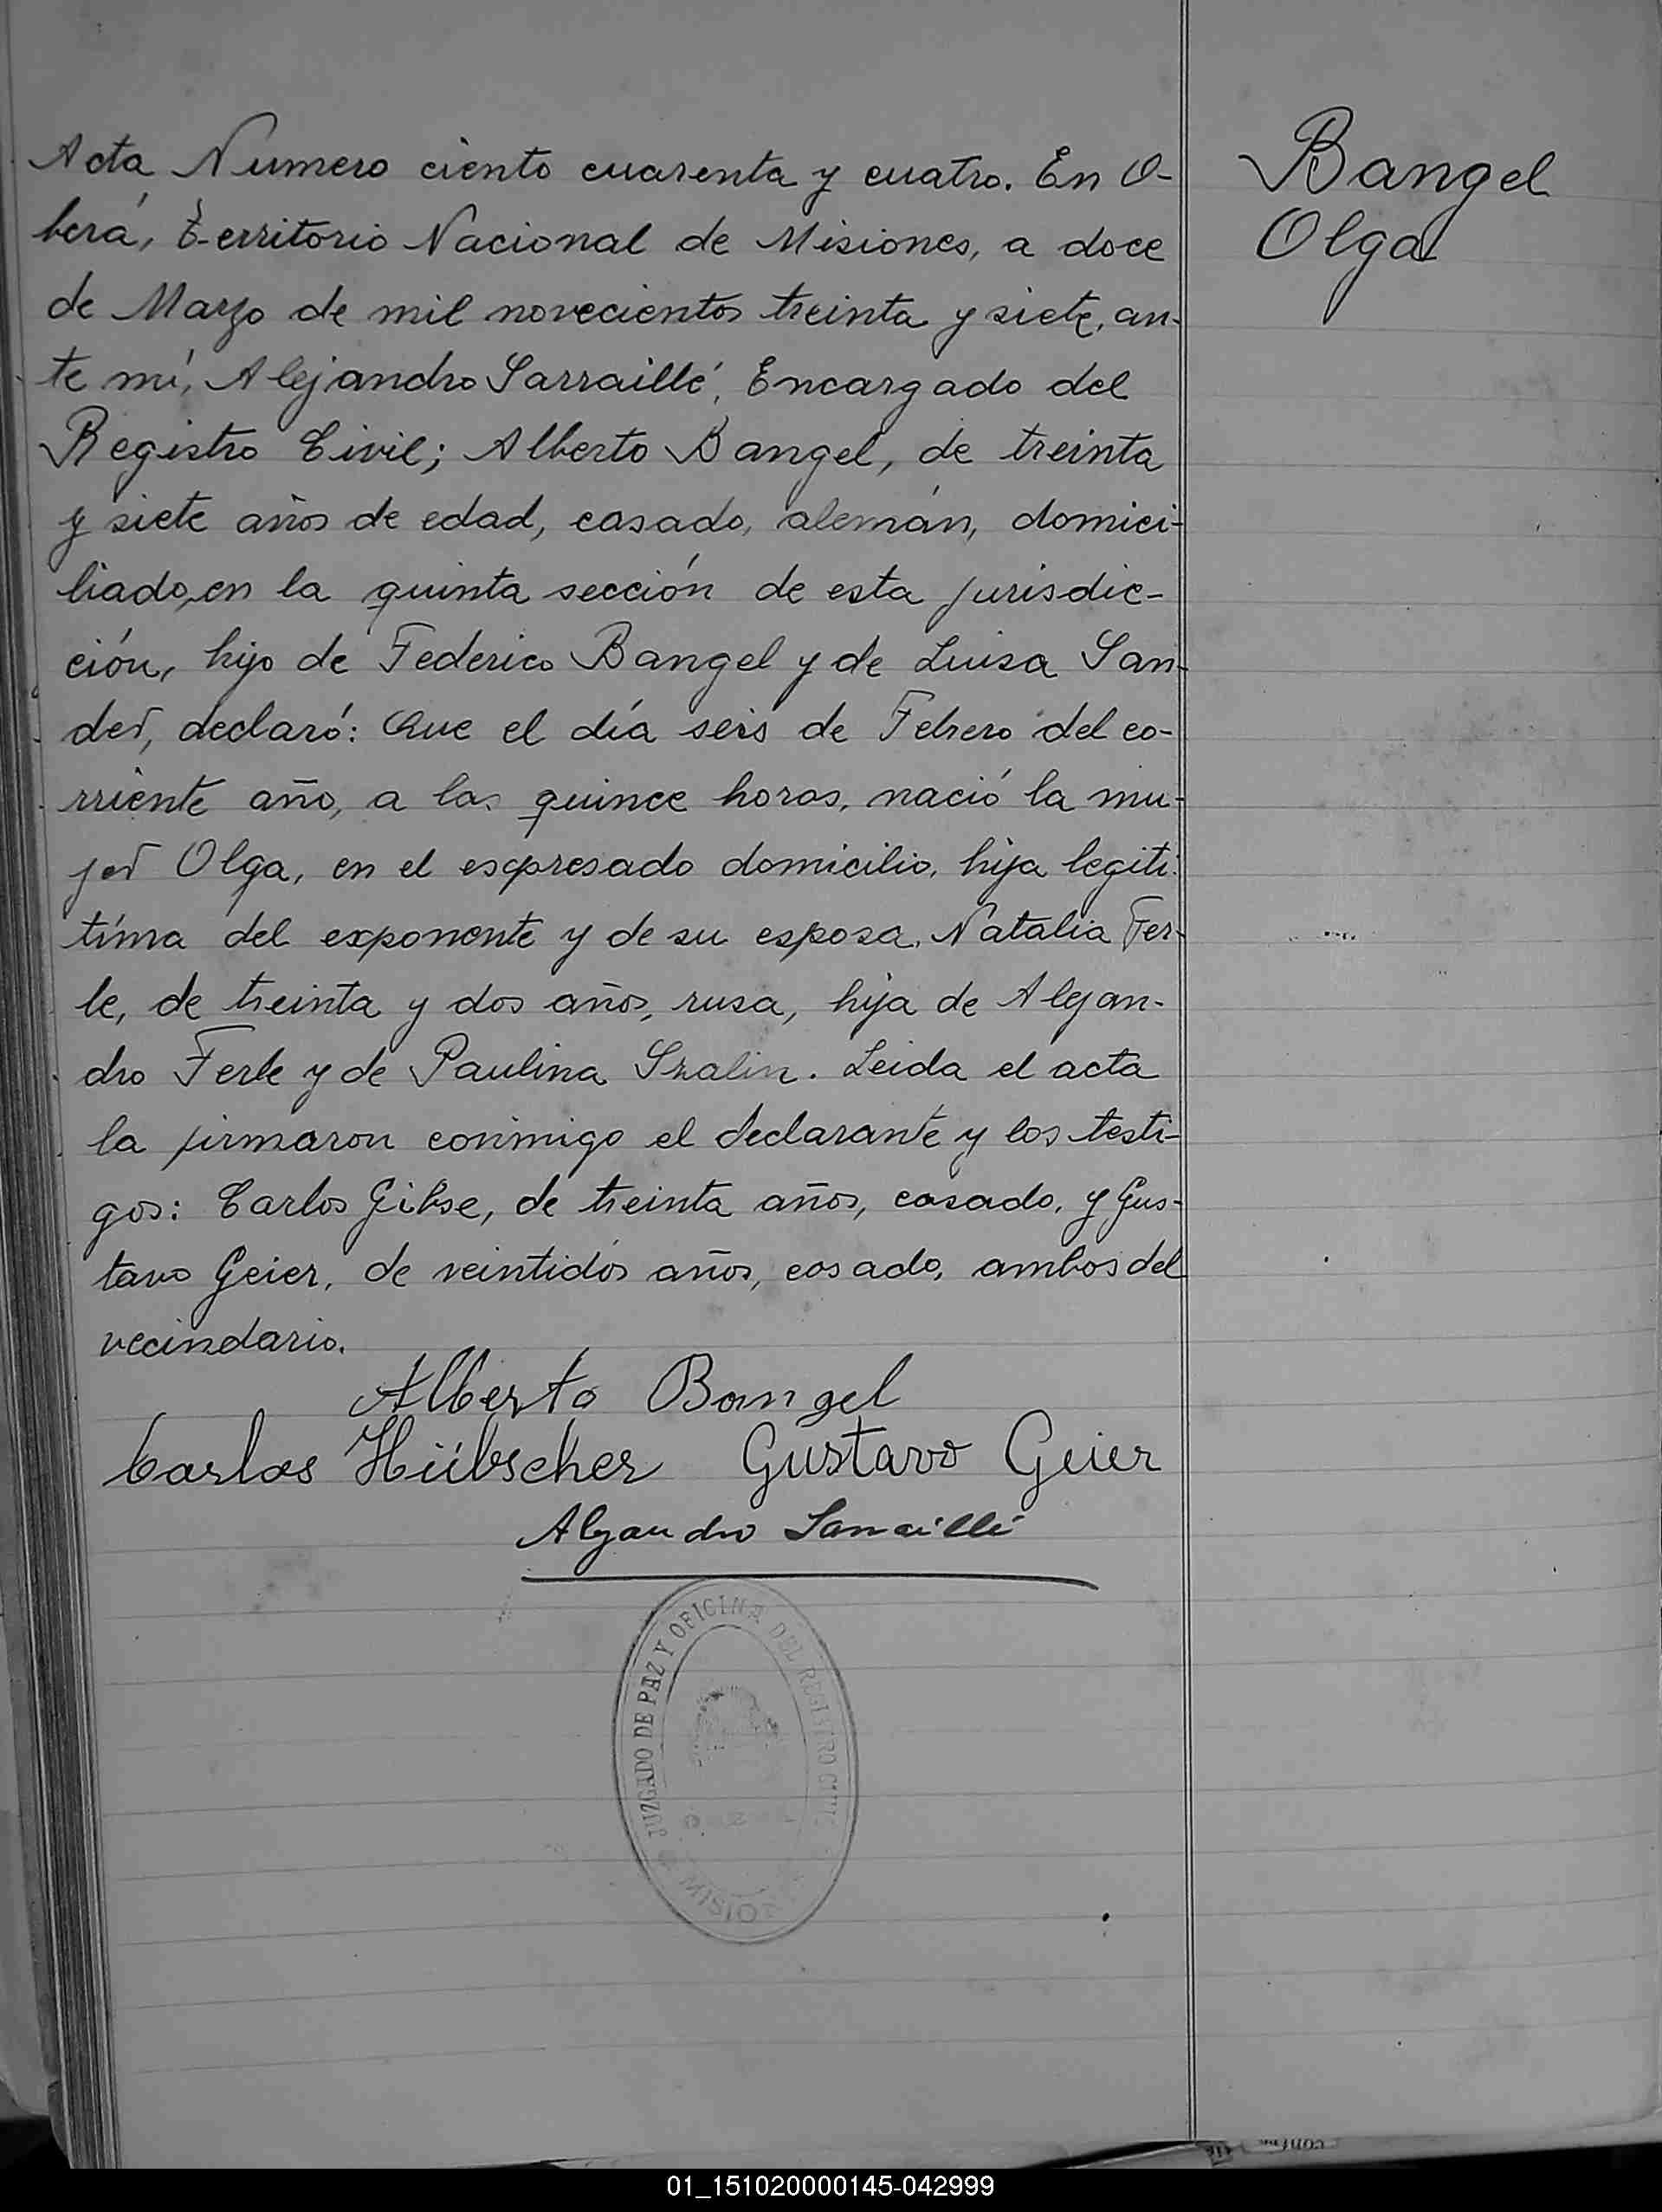 Acta Numero ciento cuarenta y cuatro. En O-
berá, Territorio Nacional de Misiones, a doce
de Marzo de mil novecientos treinta y siete, an-
te mí, Alejandro Sarraillé, Encargado del
Registro Civil; Alberto Bangel, de treinta
y siete años de edad, casado, alemán, domici-
liado, en la quinta sección de esta jurisdic-
ción, hijo de Federico Bangel y de Luisa San-
der, declaró: Que el día seis de Febrero del co-
rriente año, a las quince horas, nació la mu-
jer Olga, en el expresado domicilio, hija legiti-
tíma del exponente y de su esposa, Natalia Fer-
le, de treinta y dos años, rusa, hija de Alejan-
dro Ferle y de Paulina. Leida el acta
la firmaron conmigo el declarante y los testi-
gos: Carlos Gibse, de treinta años, casado, y Gus-
tavo Geier, de veintidós años, casado, ambos del
vecindario.
Alberto Bangel
Carlos Hübscher Gustavo Geier
Alejandro Sarraillé
JUZGADO DE PAZ Y OFICINA DEL REGISTRO CIVIL
Bangel
Olga
01_151020000145-042999